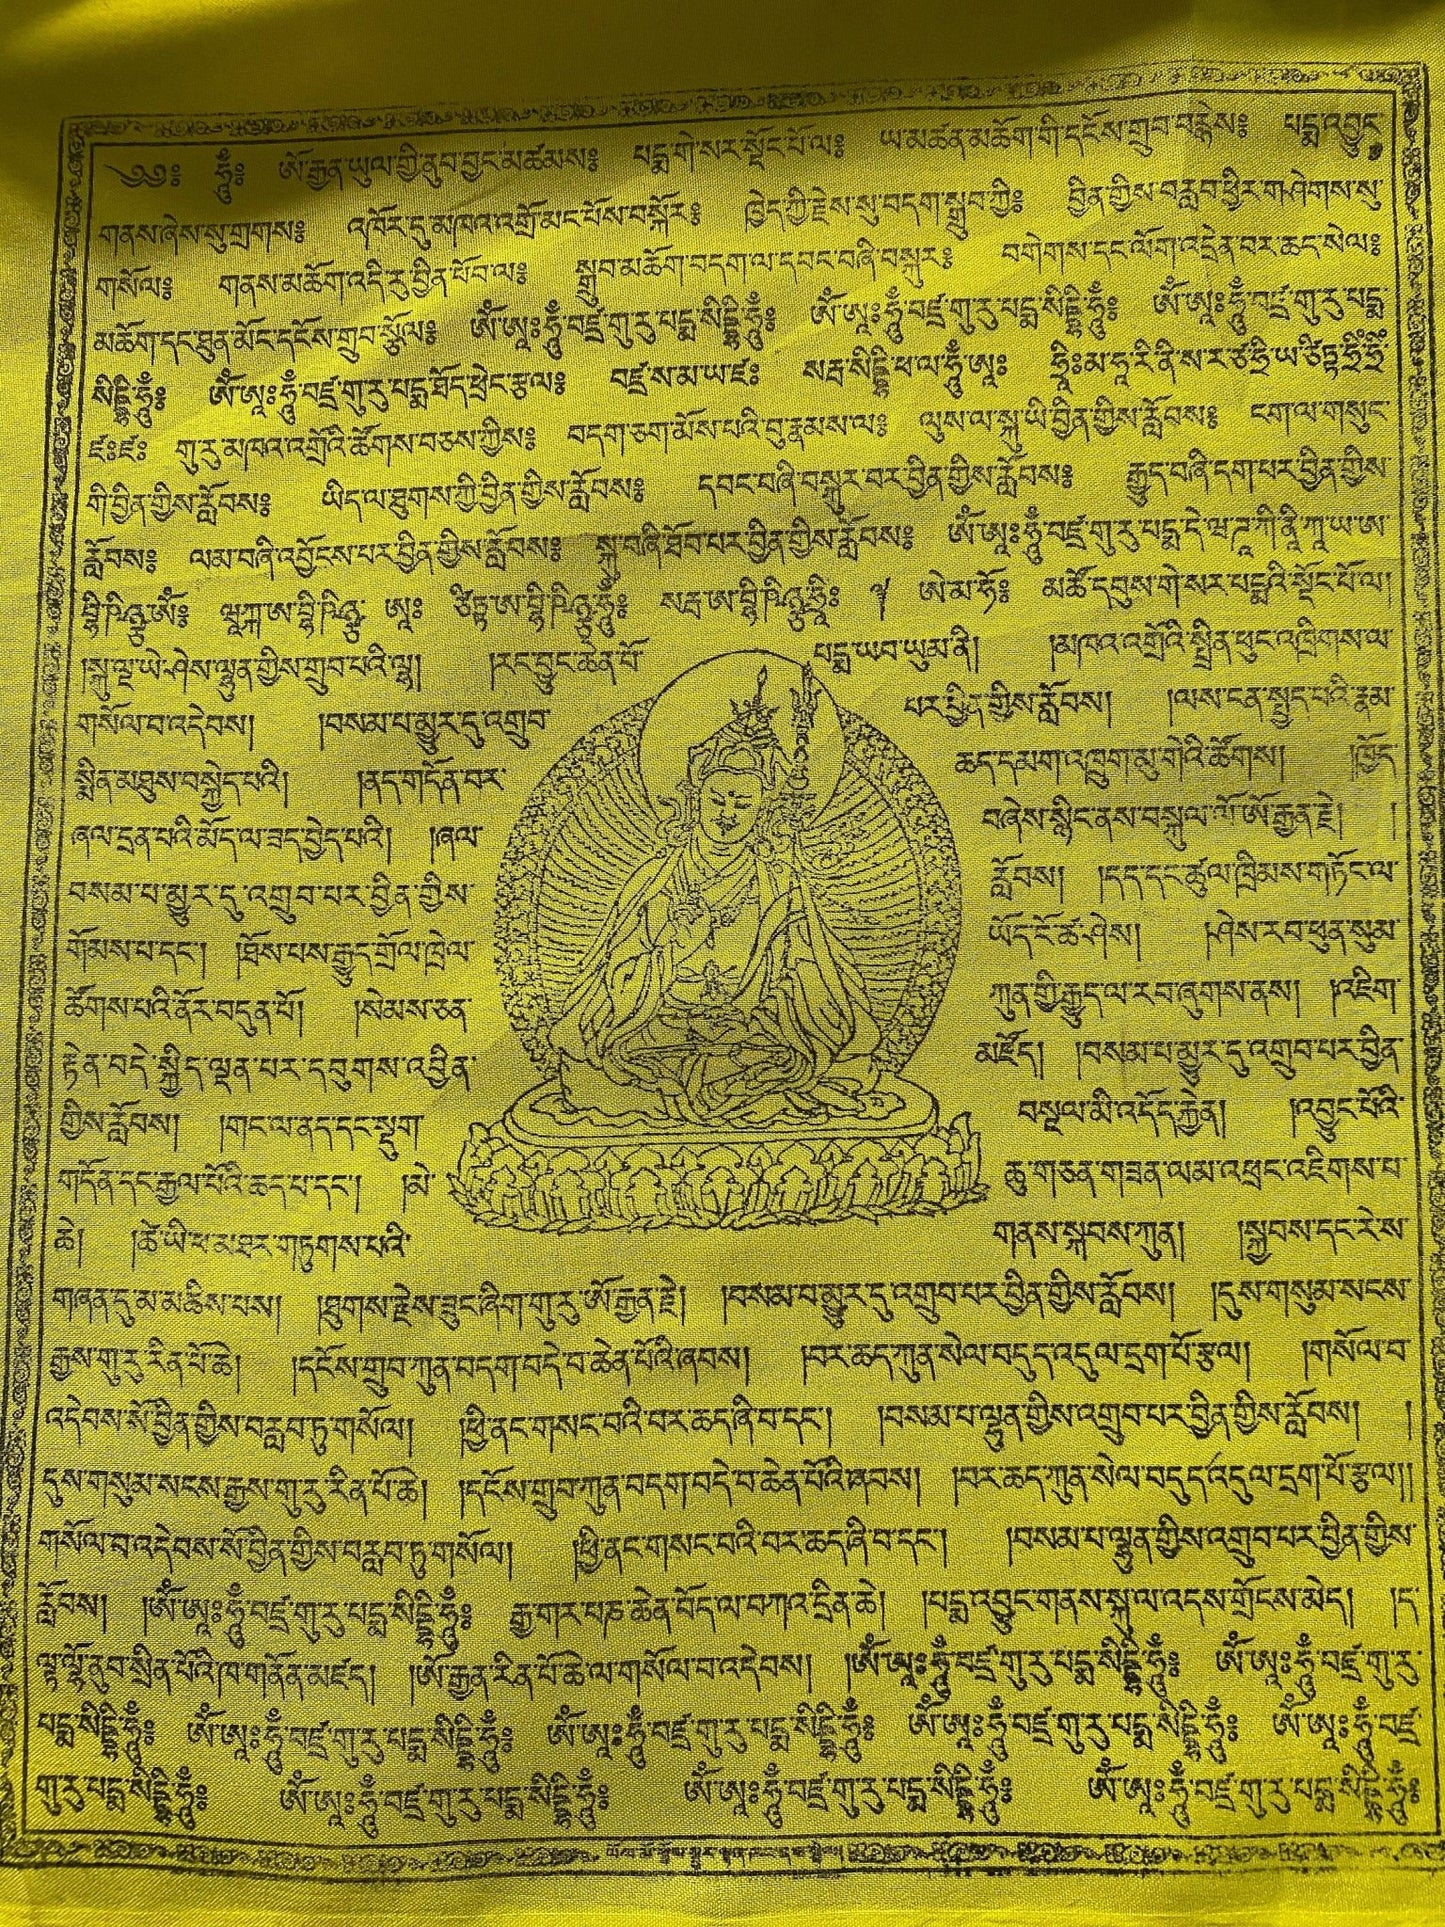 ༄༅༔ ཧཱུྃ༔ ཨོ་རྒྱན་ཡུལ་གྱི་ནུབ་བྱང་མཚམས༔ པདྨ་གེ་སར་སྡོང་པོ་ལ༔ ཡ་མཚན་མཆོག་གི་དངོས་གྲུབ་བརྙེས༔ པདྨ་འབྱུང་
གནས་ཞེས་སུ་གྲགས༔ འཁོར་དུ་མཁའ་འགྲོ་མང་པོས་བསྐོར༔ ཁྱེད་ཀྱི་རྗེས་སུ་བདག་སྒྲུབ་ཀྱི༔ བྱིན་གྱིས་བརླབ་ཕྱིར་གཤེགས་སུ་
གསོལ༔ གནས་མཆོག་འདི་རུ་བྱིན་ཕོབ་ལ༔ སྒྲུབ་མཆོག་བདག་ལ་དབང་བཞི་བསྐུར༔ བགེགས་དང་ལོག་འདྲེན་བར་ཆད་སེལ༔
མཆོག་དང་ཐུན་མོང་དངོས་གྲུབ་སྩོལ༔ ཨོཾ་ཨཱཿཧཱུྃ་བཛྲ་གུ་རུ་པདྨ་སིདྡྷི་ཧཱུྃ༔ ཨོཾ་ཨཱཿཧཱུྃ་བཛྲ་གུ་རུ་པདྨ་སིདྡྷི་ཧཱུྃ༔ ཨོཾ་ཨཱཿཧཱུྃ་བཛྲ་གུ་རུ་པདྨ་
སིདྡྷི་ཧཱུྃ༔ ཨོཾ་ཨཱཿཧཱུྃ་བཛྲ་གུ་རུ་པདྨ་ཐོད་ཕྲེང་རྩལ༔ བཛྲ་ས་མ་ཡ་ཛཿ སརྦ་སིདྡྷི་ཕ་ལ་ཧཱུྃ་ཨཱཿ ཧྲཱིཿམ་ཧཱ་རི་ནི་ས་ར་ཙ་ཧྲི་ཡ་ཙིཏྟ་ཧྲིཾ་ཧྲིཾ་
ཛཿཛཿ གུ་རུ་མཁའ་འགྲོའི་ཚོགས་བཅས་ཀྱིས༔ བདག་ཅག་མོས་པའི་བུ་རྣམས་ལ༔ ལུས་ལ་སྐུ་ཡི་བྱིན་གྱིས་རློབས༔ ངག་ལ་གསུང་
གི་བྱིན་གྱིས་རློབས༔ ཡིད་ལ་ཐུགས་ཀྱི་བྱིན་གྱིས་རློབས༔ དབང་བཞི་བསྐུར་བར་བྱིན་གྱིས་རློབས༔ རྒྱུད་བཞི་དག་པར་བྱིན་གྱིས་
རློབས༔ ལམ་བཞི་འབྱོངས་པར་བྱིན་གྱིས་རློབས༔ སྐུ་བཞི་ཐོབ་པར་བྱིན་གྱིས་རློབས༔ ཨོཾ་ཨཱཿཧཱུྃ་བཛྲ་གུ་རུ་པདྨ་དེ་ཝ་ཌཱ་ཀི་ནཱི་ཀཱ་ཡ་ཨ་
བྷི་ཥིཉྩ་ཨོཾ༔ ཝཱཀྐ་ཨ་བྷི་ཥིཉྩ་ ཨཱཿ ཙིཏྟ་ཨ་བྷི་ཥིཉྩ་ཧཱུྃ༔ སརྦ་ཨ་བྷི་ཥིཉྩ་ཧྲཱིཿ ཨེ་མ་ཧོ༔ མཚོ་དབུས་གེ་སར་པདྨའི་སྡོང་པོ་ལ།
།སྐུ་ལྔ་ཡེ་ཤེས་ལྷུན་གྱིས་གྲུབ་པའི་ལྷ། །རང་བྱུང་ཆེན་པོ་ པདྨ་ཡབ་ཡུམ་ནི། །མཁའ་འགྲོའི་སྤྲིན་ཕུང་འཁྲིགས་ལ་
གསོལ་བ་འདེབས། །བསམ་པ་མྱུར་དུ་འགྲུབ་ པར་བྱིན་གྱིས་རློབས། །ལས་ངན་སྤྱད་པའི་རྣམ་
སྨིན་མཐུས་བསྐྱེད་པའི། །ནད་གདོན་བར་ ཆད་དམག་འཁྲུག་མུ་གེའི་ཚོགས། །ཁྱོད་
ཞལ་དྲན་པའི་མོད་ལ་ཟད་བྱེད་པའི། །ཞལ་ བཞེས་སྙིང་ནས་བསྐུལ་ལོ་ཨོ་རྒྱན་རྗེ། །
བསམ་པ་མྱུར་དུ་འགྲུབ་པར་བྱིན་གྱིས་ རློབས། །དད་དང་ཚུལ་ཁྲིམས་གཏོང་ལ་
གོམས་པ་དང་། །ཐོས་པས་རྒྱུད་གྲོལ་ཁྲེལ་ ཡོད་ངོ་ཚ་ཤེས། །ཤེས་རབ་ཕུན་སུམ་
ཚོགས་པའི་ནོར་བདུན་པོ། །སེམས་ཅན་ ཀུན་གྱི་རྒྱུད་ལ་རབ་ཞུགས་ནས། །འཇིག་
རྟེན་བདེ་སྐྱིད་ལྡན་པར་དབུགས་འབྱིན་ མཛོད། །བསམ་པ་མྱུར་དུ་འགྲུབ་པར་བྱིན་
གྱིས་རློབས། །གང་ལ་ནད་དང་སྡུག་ བསྔལ་མི་འདོད་རྐྱེན། །འབྱུང་པོའི་
གདོན་དང་རྒྱལ་པོའི་ཆད་པ་དང་། །མེ་ ཆུ་གཅན་གཟན་ལམ་འཕྲང་འཇིགས་པ་
ཆེ། །ཚེ་ཡི་ཕ་མཐར་གཏུགས་པའི་ གནས་སྐབས་ཀུན། །སྐྱབས་དང་རེ་ས་
གཞན་དུ་མ་མཆིས་པས། །ཐུགས་རྗེས་ཟུང་ཞིག་གུ་རུ་ཨོ་རྒྱན་རྗེ། །བསམ་པ་མྱུར་དུ་འགྲུབ་པར་བྱིན་གྱིས་རློབས། །དུས་གསུམ་སངས་
རྒྱས་གུ་རུ་རིན་པོ་ཆེ། །དངོས་གྲུབ་ཀུན་བདག་བདེ་བ་ཆེན་པོའི་ཞབས། །བར་ཆད་ཀུན་སེལ་བདུད་འདུལ་དྲག་པོ་རྩལ། །གསོལ་བ་
འདེབས་སོ་བྱིན་གྱིས་བརླབ་ཏུ་གསོལ། །ཕྱི་ནང་གསང་བའི་བར་ཆད་ཞི་བ་དང་། །བསམ་པ་ལྷུན་གྱིས་འགྲུབ་པར་བྱིན་གྱིས་རློབས། །
དུས་གསུམ་སངས་རྒྱས་གུ་རུ་རིན་པོ་ཆེ། །དངོས་གྲུབ་ཀུན་བདག་བདེ་བ་ཆེན་པོའི་ཞབས། །བར་ཆད་ཀུན་སེལ་བདུད་འདུལ་དྲག་པོ་རྩལ།།
གསོལ་བ་འདེབས་སོ་བྱིན་གྱིས་བརླབ་ཏུ་གསོལ། །ཕྱི་ནང་གསང་བའི་བར་ཆད་ཞི་བ་དང་། །བསམ་པ་ལྷུན་གྱིས་འགྲུབ་པར་བྱིན་གྱིས་
རློབས། །ཨོཾ་ཨཱཿཧཱུྃ་བཛྲ་གུ་རུ་པདྨ་སིདྡྷི་ཧཱུྃ༔ རྒྱ་གར་པཎ་ཆེན་བོད་ལ་བཀའ་དྲིན་ཆེ། །པདྨ་འབྱུང་གནས་སྐུ་ལ་འདས་གྲོངས་མེད། །ད་
ལྟ་ལྷོ་ནུབ་སྲིན་པོའི་ཁ་གནོན་མཛད། །ཨོ་རྒྱན་རིན་པོ་ཆེ་ལ་གསོལ་བ་འདེབས། །ཨོཾ་ཨཱཿཧཱུྃ་བཛྲ་གུ་རུ་པདྨ་སིདྡྷི་ཧཱུྃ༔ ཨོཾ་ཨཱཿཧཱུྃ་བཛྲ་གུ་རུ་
པདྨ་སིདྡྷི་ཧཱུྃ༔ ཨོཾ་ཨཱཿཧཱུྃ་བཛྲ་གུ་རུ་པདྨ་སིདྡྷི་ཧཱུྃ༔ ཨོཾ་ཨཱཿཧཱུྃ་བཛྲ་གུ་རུ་པདྨ་སིདྡྷི་ཧཱུྃ༔ ཨོཾ་ཨཱཿཧཱུྃ་བཛྲ་གུ་རུ་པདྨ་སིདྡྷི་ཧཱུྃ༔ ཨོཾ་ཨཱཿཧཱུྃ་བཛྲ་
གུ་རུ་པདྨ་སིདྡྷི་ཧཱུྃ༔ ཨོཾ་ཨཱཿཧཱུྃ་བཛྲ་གུ་རུ་པདྨ་སིདྡྷི་ཧཱུྃ༔ ཨོཾ་ཨཱཿཧཱུྃ་བཛྲ་གུ་རུ་པདྨ་སིདྡྷི་ཧཱུྃ༔ ཨོཾ་ཨཱཿཧཱུྃ་བཛྲ་གུ་རུ་པདྨ་སིདྡྷི་ཧཱུྃ༔